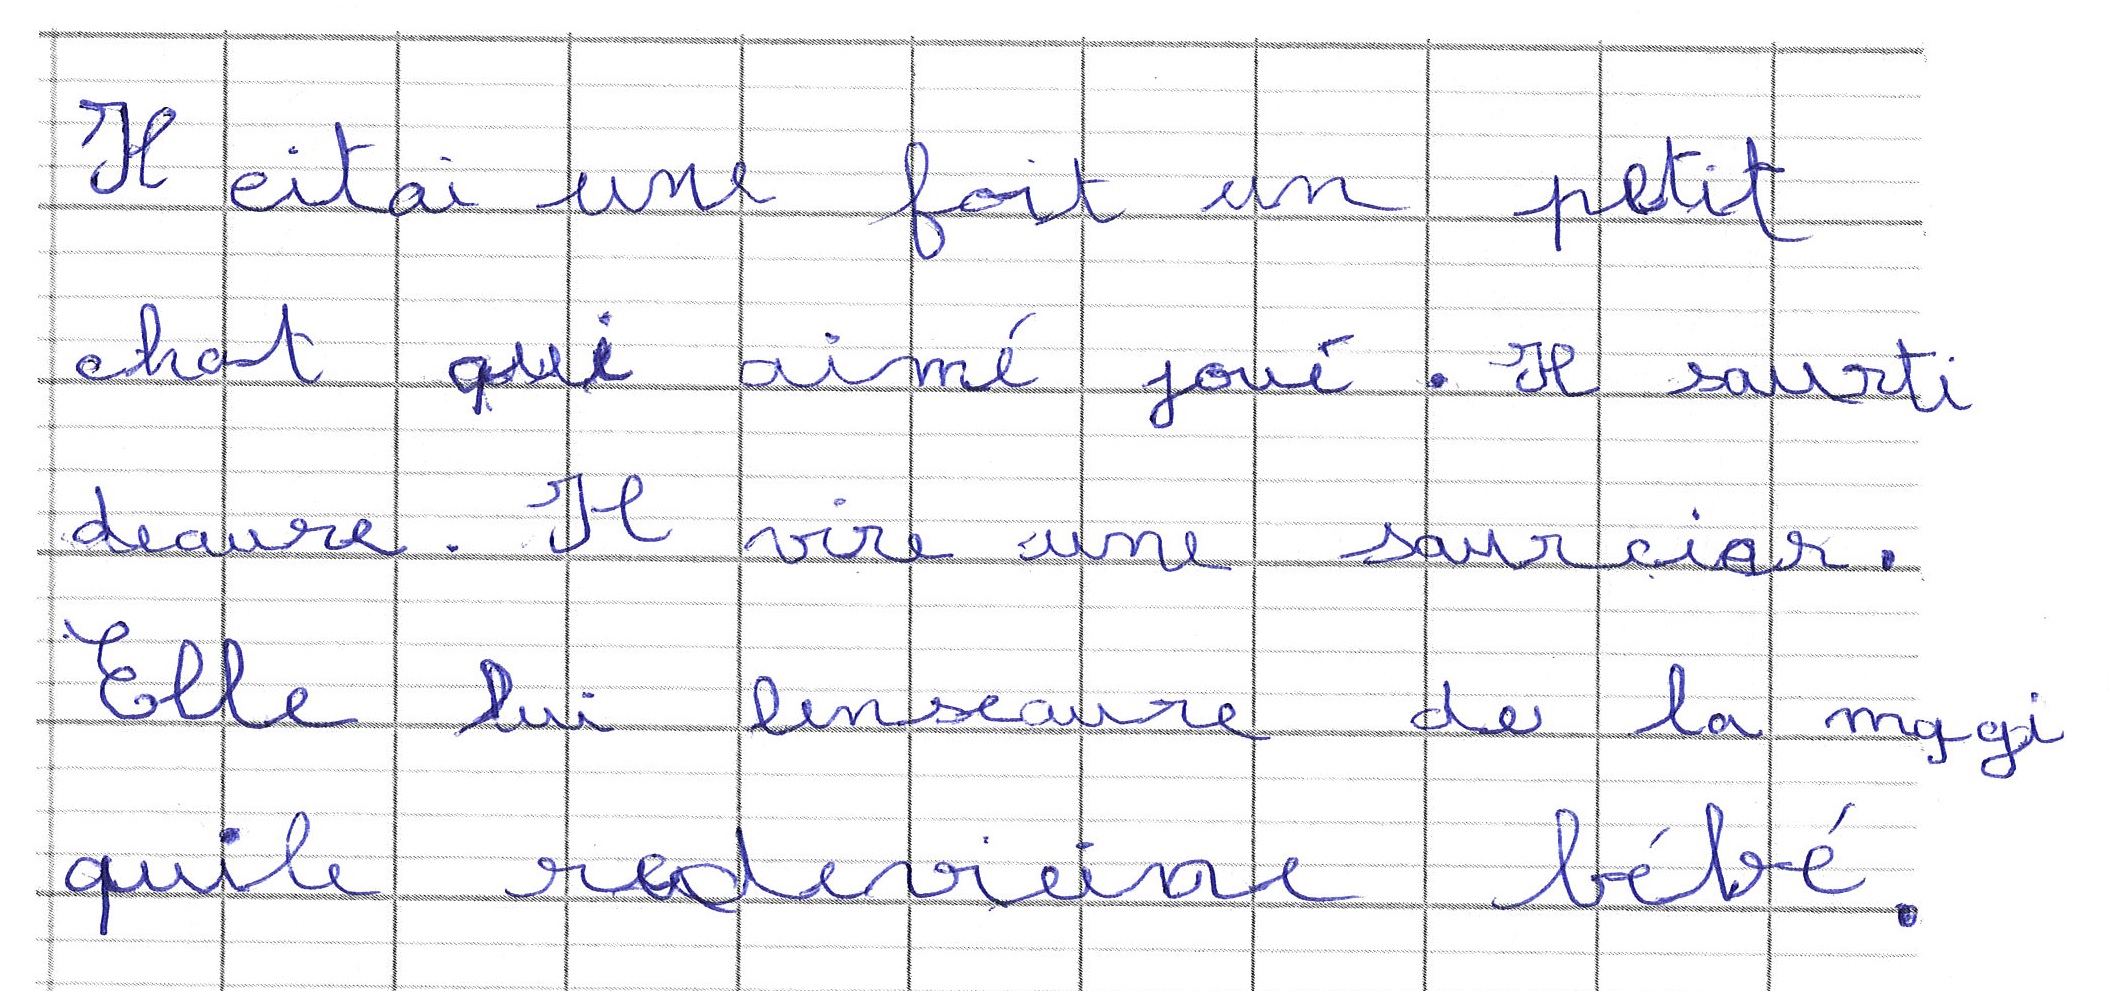 Il eitai une foit un petit
chat qui aimé joué. Il saurti
deaure. Il vire une saurcier.
Elle lui lenseaure de la magi
quile redevieine bébé.